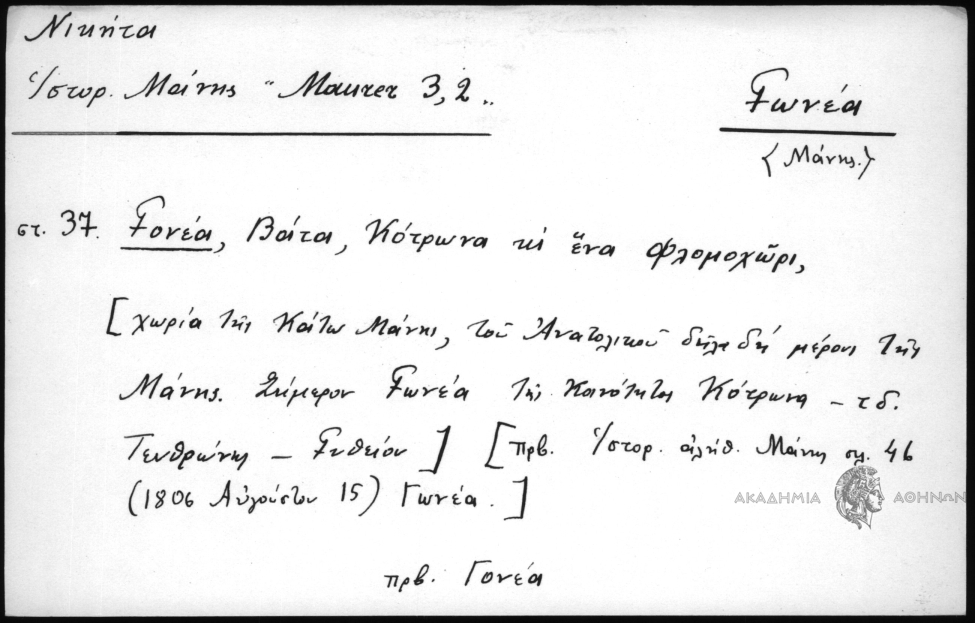 Νικήτα
Ἱστορ. Μάνης "Maurer 3,2"
Γωνέα
<Μάνης.>
στ. 37. Γονέα, Βάτα, Κότρωνα κι ἕνα Φλομοχῶρι,
[χωρία τῆς Κάτω Μάνης, τοῦ Ἀνατολικοῦ δηλαδή μέρους τῆς
Μάνης. Σήμερον Γωνέα τῆς Κοινότητος Κότρωνα – τ. δ.
Τευθρώνης – Γυθείου] [πρβ. Ἱστορ. ἀλήθ. Μάνης σελ. 46
(1806 Αὐγούστου 15) Γωνέα.]
ΑΚΑΔΗΜΙΑ ΑΘΗΝΩΝ
πρβ. Γονέα